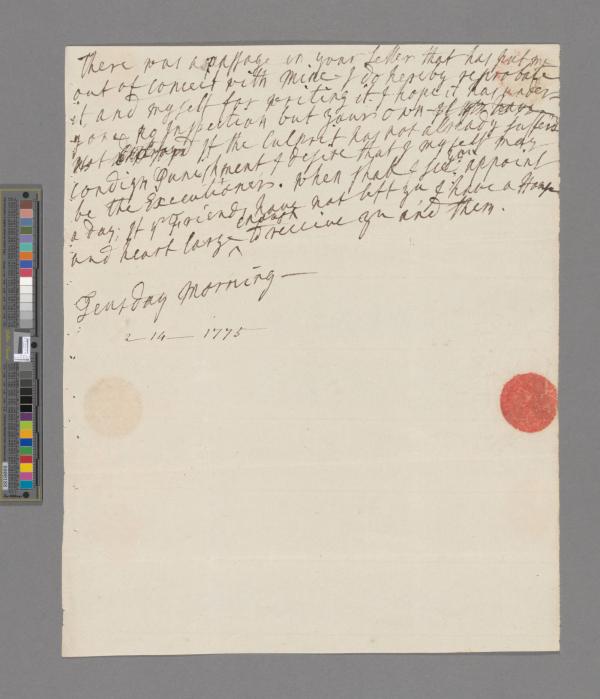 There was a passage in your Letter that has put me
out of conceit with mine I do hereby reprobate
it and myself for writing it I hope it has under-
gone no Inspection but your own
not If the Culprit has not already suffer'd
condign Punishment I desire that I myself may
be the Executioner. When shall I see you appoint
a day; If yr Friends have not left yu I have a House
and heart large enough to receive yu and them.
Teusday Morning—
2—14—1775